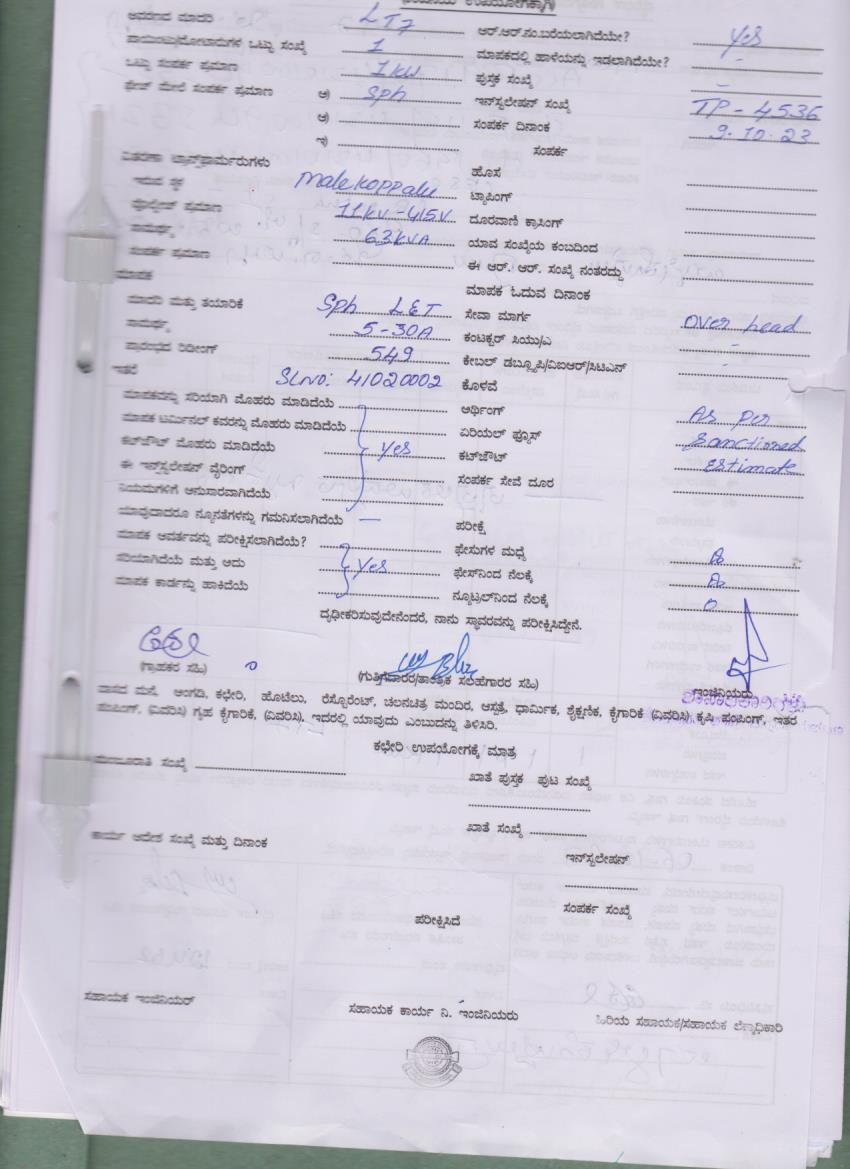 (ಕಂಪನಿಯ ಉಪಯೋಗಕ್ಕಾಗಿ)
ಆವರಣದ ಮಾದರಿ LT7 ಆರ್.ಆರ್.ನಂ.ಬರೆಯಲಾಗಿದೆಯೇ? yes
ಪಾಯಿಂಟು/ಮೋಟಾರುಗಳ ಒಟ್ಟು ಸಂಖ್ಯೆ 1 ಮಾಪಕದಲ್ಲಿ ಹಾಳೆಯನ್ನು ಇಡಲಾಗಿದೆಯೇ? -
ಒಟ್ಟು ಸಂಪರ್ಕ ಪ್ರಮಾಣ 1kw ಪುಸ್ತಕ ಸಂಖ್ಯೆ -
ಫೇಜ್ ಮೇಲೆ ಸಂಪರ್ಕ ಪ್ರಮಾಣ ಅ) Sph ಇನ್‌ಸ್ಟಲೇಷನ್ ಸಂಖ್ಯೆ TP - 4536
ಆ) ಸಂಪರ್ಕ ದಿನಾಂಕ 9.10.23
ಇ) ಸಂಪರ್ಕ
ವಿತರಣಾ ಟ್ರಾನ್ಸ್‌ಫಾರ್ಮರುಗಳು ಹೊಸ
ಇರುವ ಸ್ಥಳ Malekoppalu ಟ್ಯಾಪಿಂಗ್
ವೋಲ್ಟೇಜ್ ಪ್ರಮಾಣ 11kv-415V ದೂರವಾಣಿ ಕ್ರಾಸಿಂಗ್
ಸಾಮರ್ಥ್ಯ 63kVA ಯಾವ ಸಂಖ್ಯೆಯ ಕಂಬದಿಂದ
ಸಂಪರ್ಕ ಪ್ರಮಾಣ ಈ ಆರ್. ಆರ್. ಸಂಖ್ಯೆ ನಂತರದ್ದು
ಮಾಪಕ ಮಾಪಕ ಓದುವ ದಿನಾಂಕ
ಮಾದರಿ ಮತ್ತು ತಯಾರಿಕೆ Sph L&T ಸೇವಾ ಮಾರ್ಗ over head
ಸಾಮರ್ಥ್ಯ 5-30A ಕಂಟಕ್ಟರ್ ಸಿಯು/ಎ -
ಪ್ರಾರಂಭದ ರಿಡೀಂಗ್ 549 ಕೇಬಲ್ ಡಬ್ಲ್ಯೂಪಿ/ವಿಐಆರ್/ಸಿಟಿಎನ್ -
ಇತರೆ SLNO: 41020002 ಕೊಳವೆ
ಮಾಪಕವನ್ನು ಸರಿಯಾಗಿ ಮೊಹರು ಮಾಡಿದೆಯೆ ಅರ್ಥಿಂಗ್ As per
ಮಾಪಕ ಟರ್ಮಿನಲ್ ಕವರನ್ನು ಮೊಹರು ಮಾಡಿದೆಯೆ ಏರಿಯಲ್ ಫ್ಯೂಸ್ Sanctioned
ಕಟ್‌ಔಟ್ ಮೊಹರು ಮಾಡಿದೆಯೆ yes ಕಟ್‌ಔಟ್ Estimate
ಈ ಇನ್‌ಸ್ಟಲೇಷನ್ ವೈರಿಂಗ್ ಸಂಪರ್ಕ ಸೇವೆ ದೂರ
ನಿಯಮಗಳಿಗೆ ಅನುಸಾರವಾಗಿದೆಯೆ
ಯಾವುದಾದರೂ ನ್ಯೂನತೆಗಳನ್ನು ಗಮನಿಸಲಾಗಿದೆಯೆ — ಪರೀಕ್ಷೆ
ಮಾಪಕ ಆವರ್ತವನ್ನು ಪರೀಕ್ಷಿಸಲಾಗಿದೆಯೆ? ಫೇಸುಗಳ ಮಧ್ಯೆ
ಸರಿಯಾಗಿದೆಯೆ ಮತ್ತು ಅದು yes ಫೇಸ್‌ನಿಂದ ನೆಲಕ್ಕೆ
ಮಾಪಕ ಕಾರ್ಡನ್ನು ಹಾಕಿದೆಯೆ ನ್ಯೂಟ್ರಲ್‌ನಿಂದ ನೆಲಕ್ಕೆ 0
ದೃಢೀಕರಿಸುವುದೇನೆಂದರೆ, ನಾನು ಸ್ಥಾವರವನ್ನು ಪರೀಕ್ಷಿಸಿದ್ದೇನೆ.
(ಗ್ರಾಹಕರ ಸಹಿ) (ಗುತ್ತಿಗೆದಾರರ/ತಾಂತ್ರಿಕ ಸಲಹೆಗಾರರ ಸಹಿ) ಇಂಜಿನಿಯರು
ವಾಸದ ಮನೆ, ಅಂಗಡಿ, ಕಛೇರಿ, ಹೊಟೆಲು, ರೆಸ್ಟೊರೆಂಟ್, ಚಲನಚಿತ್ರ ಮಂದಿರ, ಆಸ್ಪತ್ರೆ, ಧಾರ್ಮಿಕ, ಶೈಕ್ಷಣಿಕ, ಕೈಗಾರಿಕೆ (ವಿವರಿಸಿ) ಕೃಷಿ ಪಂಪಿಂಗ್, ಇತರ
ಪಂಪಿಂಗ್, (ವಿವರಿಸಿ) ಗೃಹ ಕೈಗಾರಿಕೆ, (ವಿವರಿಸಿ), ಇದರಲ್ಲಿ ಯಾವುದು ಎಂಬುದನ್ನು ತಿಳಿಸಿರಿ.
ಕಛೇರಿ ಉಪಯೋಗಕ್ಕೆ ಮಾತ್ರ
ಮಂಜೂರಾತಿ ಸಂಖ್ಯೆ ಖಾತೆ ಪುಸ್ತಕ ಪುಟ ಸಂಖ್ಯೆ
ಖಾತೆ ಸಂಖ್ಯೆ
ಕಾರ್ಯ ಆದೇಶ ಸಂಖ್ಯೆ ಮತ್ತು ದಿನಾಂಕ
ಇನ್‌ಸ್ಟಲೇಷನ್
ಸಂಪರ್ಕ ಸಂಖ್ಯೆ
ಪರೀಕ್ಷಿಸಿದೆ
ಸಹಾಯಕ ಇಂಜಿನಿಯರ್ ಸಹಾಯಕ ಕಾರ್ಯ ನಿ. ಇಂಜಿನಿಯರು ಹಿರಿಯ ಸಹಾಯಕ/ಸಹಾಯಕ ಲೆಕ್ಕಾಧಿಕಾರಿ